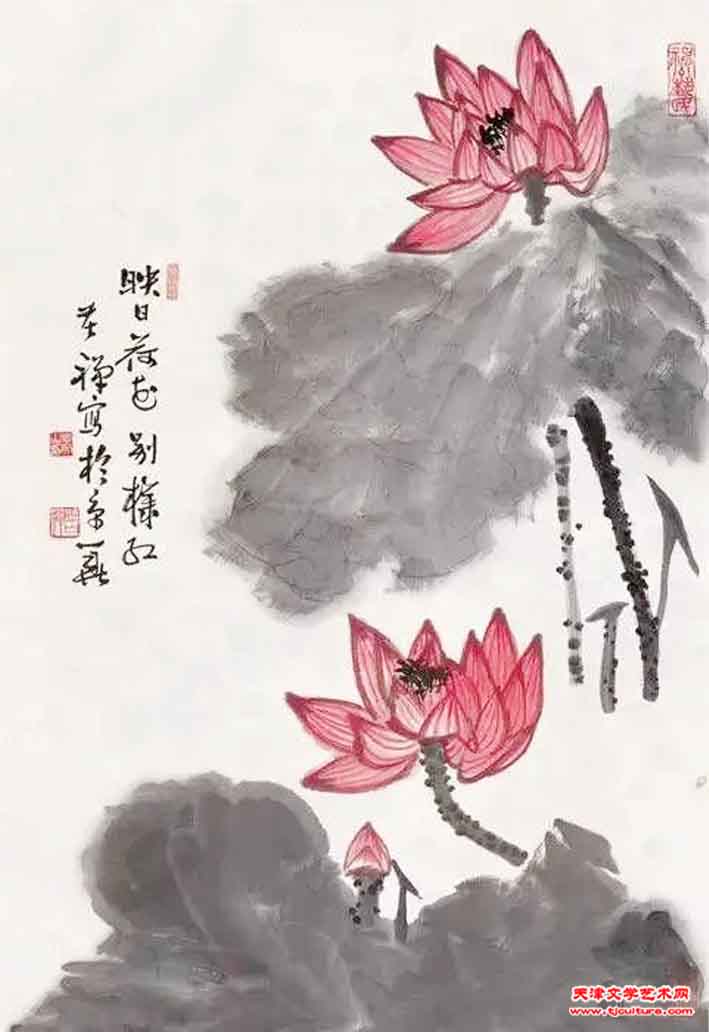 映日荷花别樣红
禅写於京華
天津文学艺术网
www.tjculture.com